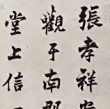 張孝祥
觀于南郡
堂上信